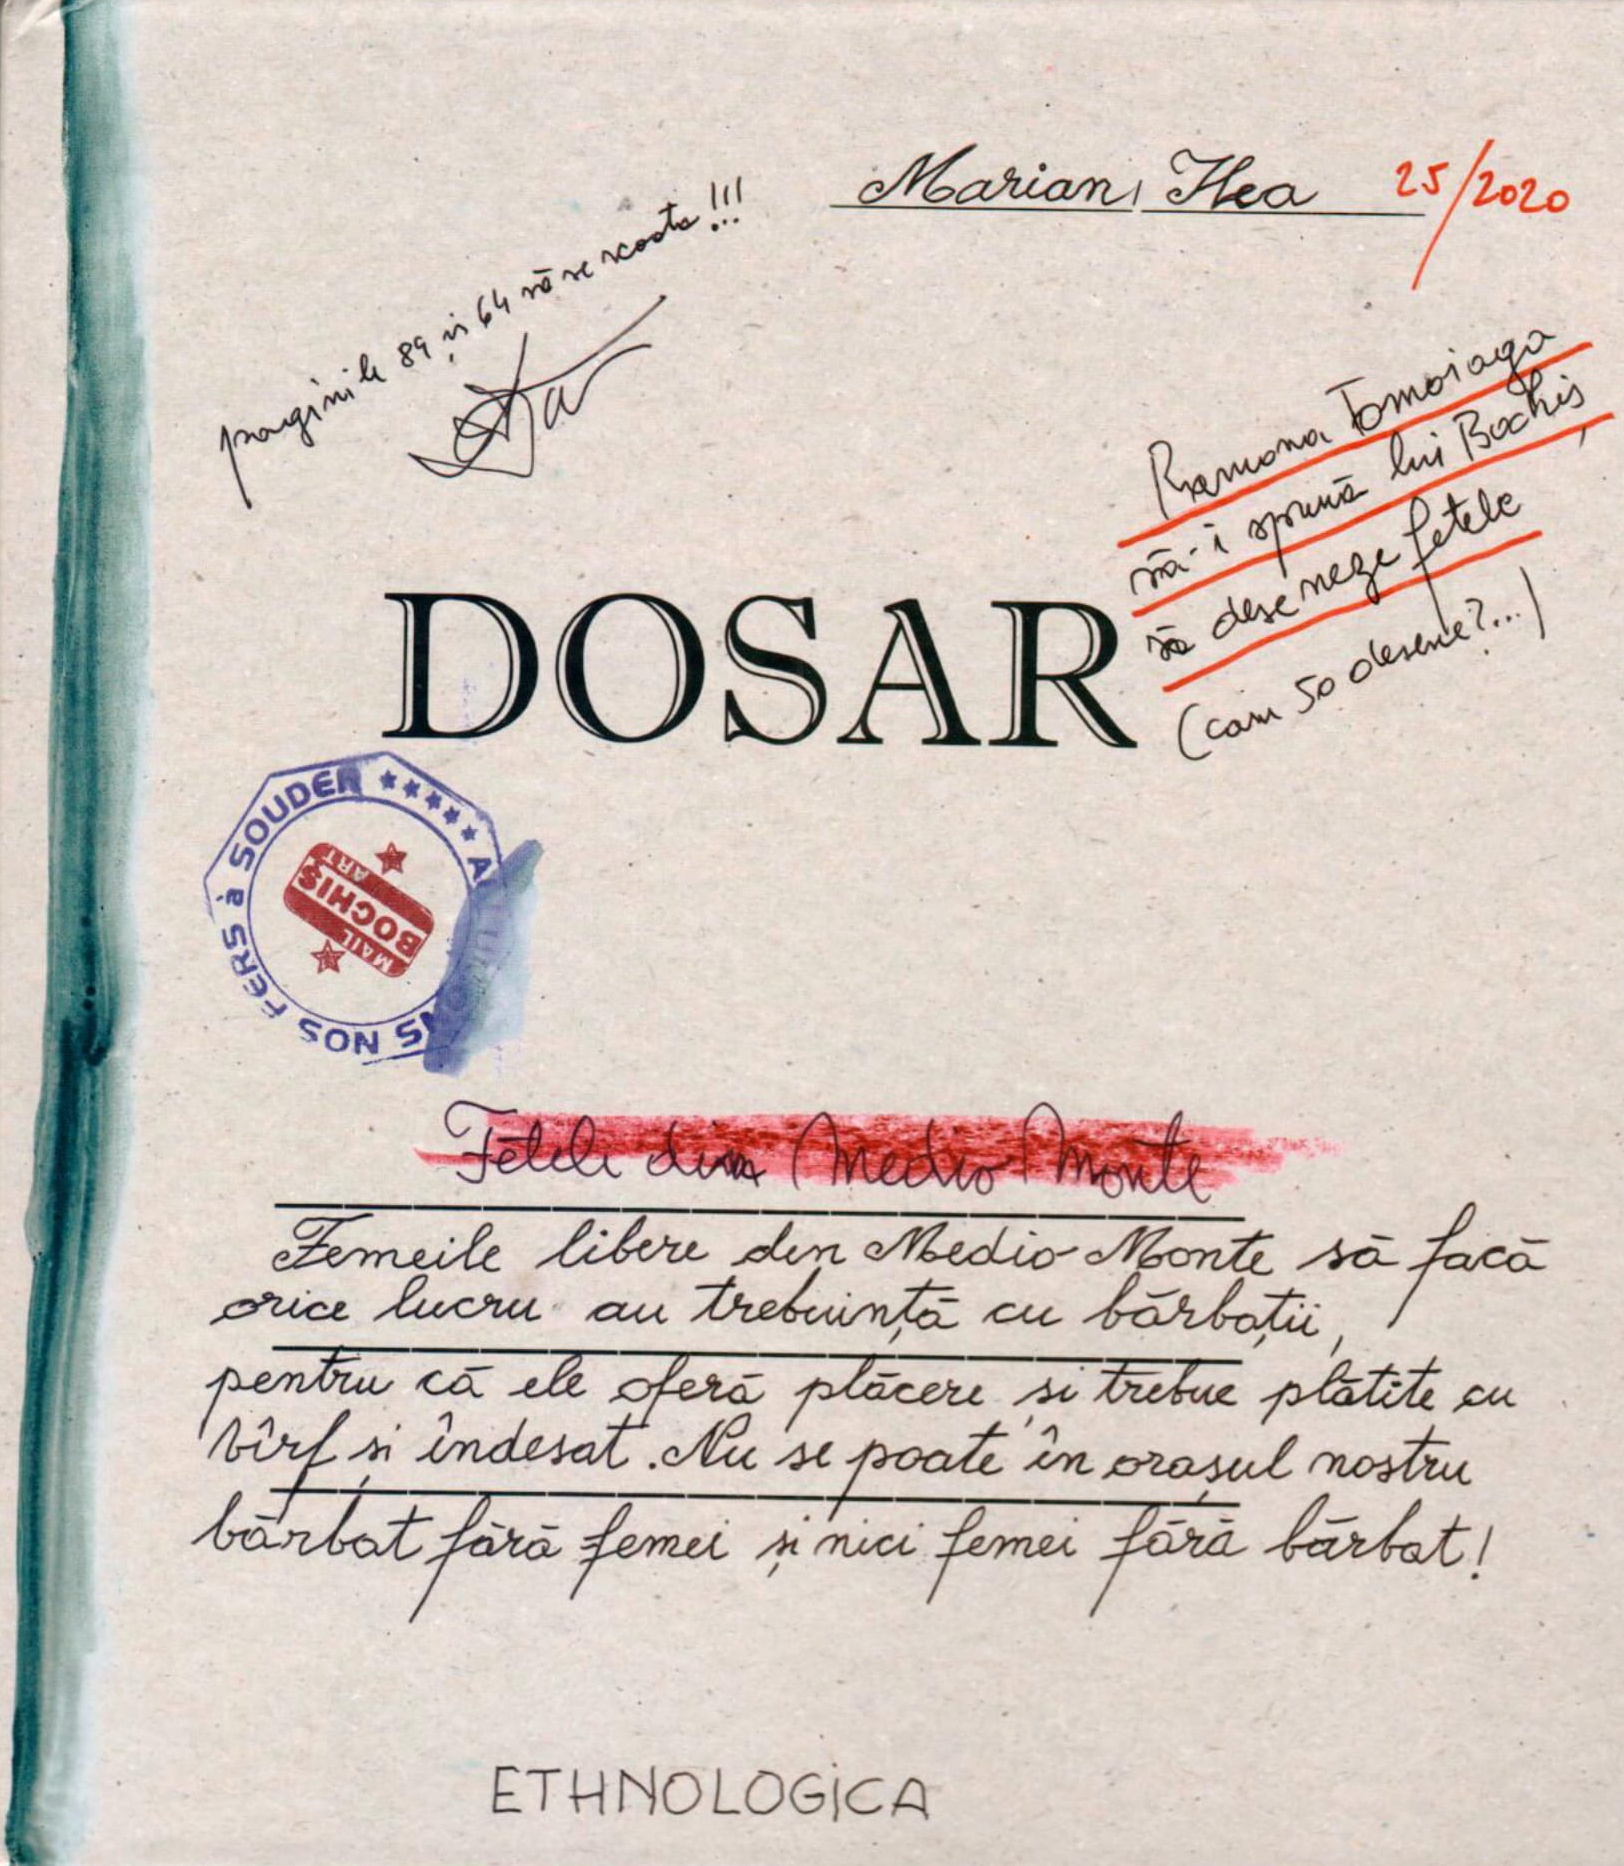 Marian Ilea 25/2020
paginile 89 și 64 să se scoată!!!
Ramona Tomoiaga
să-i spună lui Bochiș
să deseneze fetele
(cam 50 desene?...)
DOSAR
NOS FERS à SOUDER ★★★★★ A
MAIL
BOCHIȘ
ART
Fetele din Medio Monte
Femeile libere din Medio-Monte să facă
orice lucru au trebuință cu bărbații,
pentru că ele oferă plăcere și trebue plătite cu
vîrf și îndesat. Nu se poate în orașul nostru
bărbat fără femei și nici femei fără bărbat!
ETHNOLOGICA